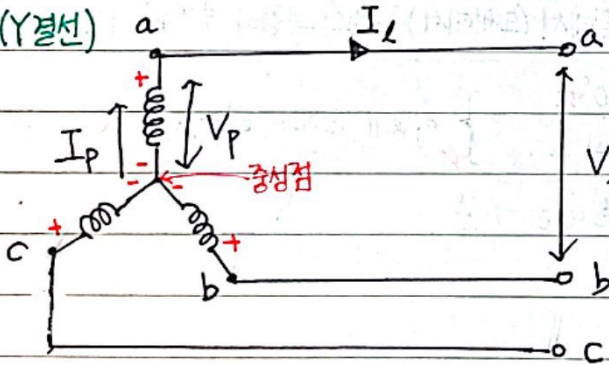 (Y결선)
a
I_l
a
+
I_p
V_p
V
-
- -
중성점
+
+
c
b
b
c